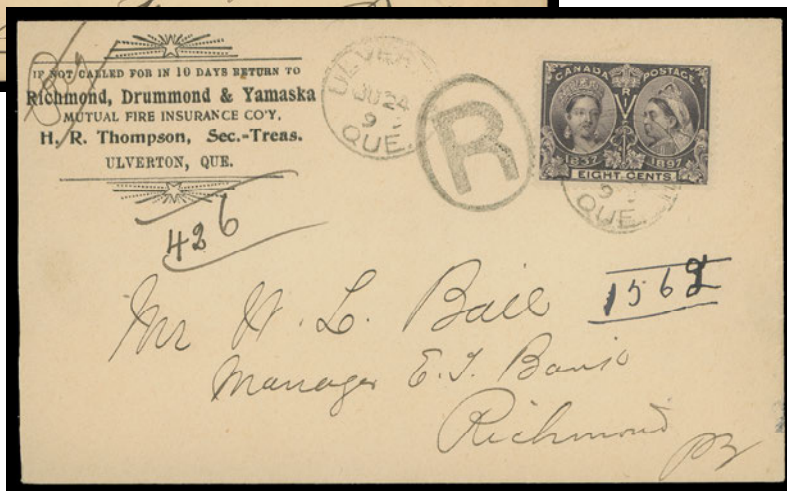 Reg
IF NOT CALLED FOR IN 10 DAYS RETURN TO
Richmond, Drummond & Yamaska
MUTUAL FIRE INSURANCE CO'Y,
H. R. Thompson, Sec.-Treas.
ULVERTON, QUE.
JU 24
9
QUE.
R
CANADA POSTAGE
1837 1897
EIGHT CENTS
9
QUE
426
1562
Mr H. L. Bail
Manager E. T. Bank
Richmond
PQ